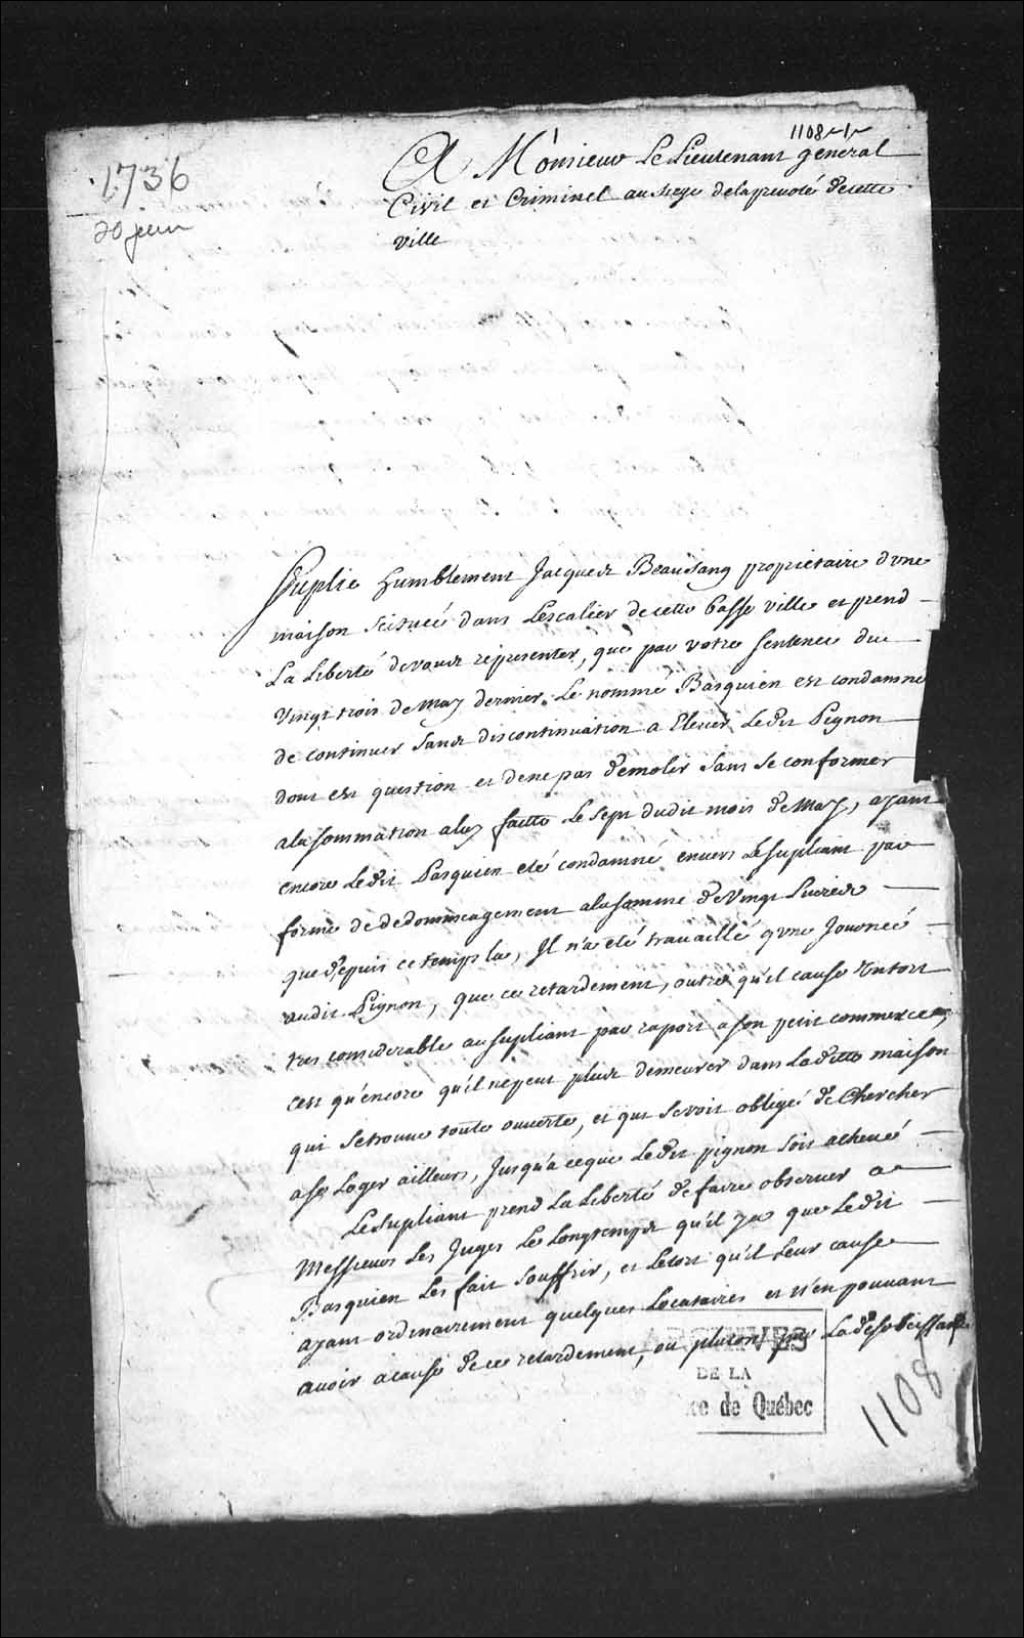 1108-1-
A Monsieur Le Lieutenant general
1736
Civil et Criminel au siege de la prevoté de cette
20 juin
ville
Suplie humblement Jacques Beausang proprietaire d'vne
maison scituéé dans L'escalier de cette basse ville et prend
La Liberté de vous representer, que par votre sentence du
vingt trois de may dernier, Le nommé Basquien est condamné
de continuer sans discontinuation a Elever Ledit Pignon
dont est question et de ne pas demolir sans se conformer
a la sommation a luy faitte Le sept dudit mois de May, ayant
encore Ledit Basquien eté condamné envers Le supliant par
forme de dedommeagement a la somme de Vingt Livres
que depuis ce temps la, Il n'a eté travaillé qvne Journéé
audit Pignon, que ce retardement, outre qu'il cause un tort
tres considerable au supliant par raport a son petit commerce
cest qu'encore qu'il ne peut plus demeurer dans Laditte maison
qui se trouve toute ouverte, et qui seroit obligé de Chercher
a se Loger ailleurs, Jusqu'a ce que Ledit pignon soit achevé
Le supliant prend La Liberté de faire observer a
Messieurs Les Juges Le Longtemps qu'il y a que Ledit
Basquien Les fait souffrir, et Le tort qu'il Leur cause
ayant ordinairement quelques Locataires et n'en pouvant
avoir a cause de ce retardement, ou plutot par La desobeissance
DE LA
ce de Québec
1108